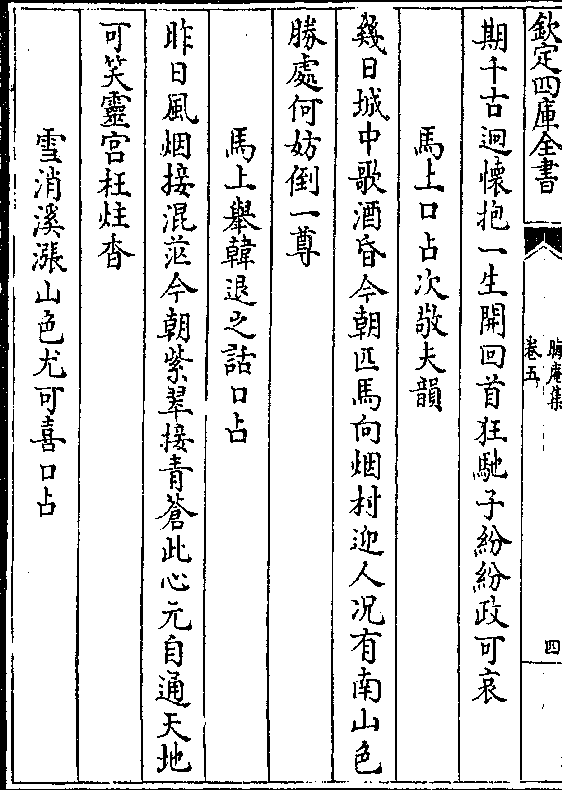 欽定四庫全書
晦庵集
卷五
四
期千古迥懷抱一生開回首狂馳子紛紛政可哀
馬上口占次敬夫韻
幾日城中歌酒昏今朝匹馬向烟村迎人况有南山色
勝處何妨倒一尊
馬上舉韓退之話口占
昨日風烟接混茫今朝紫翠接青蒼此心元自通天地
可笑靈宫枉炷香
雪消溪漲山色尤可喜口占